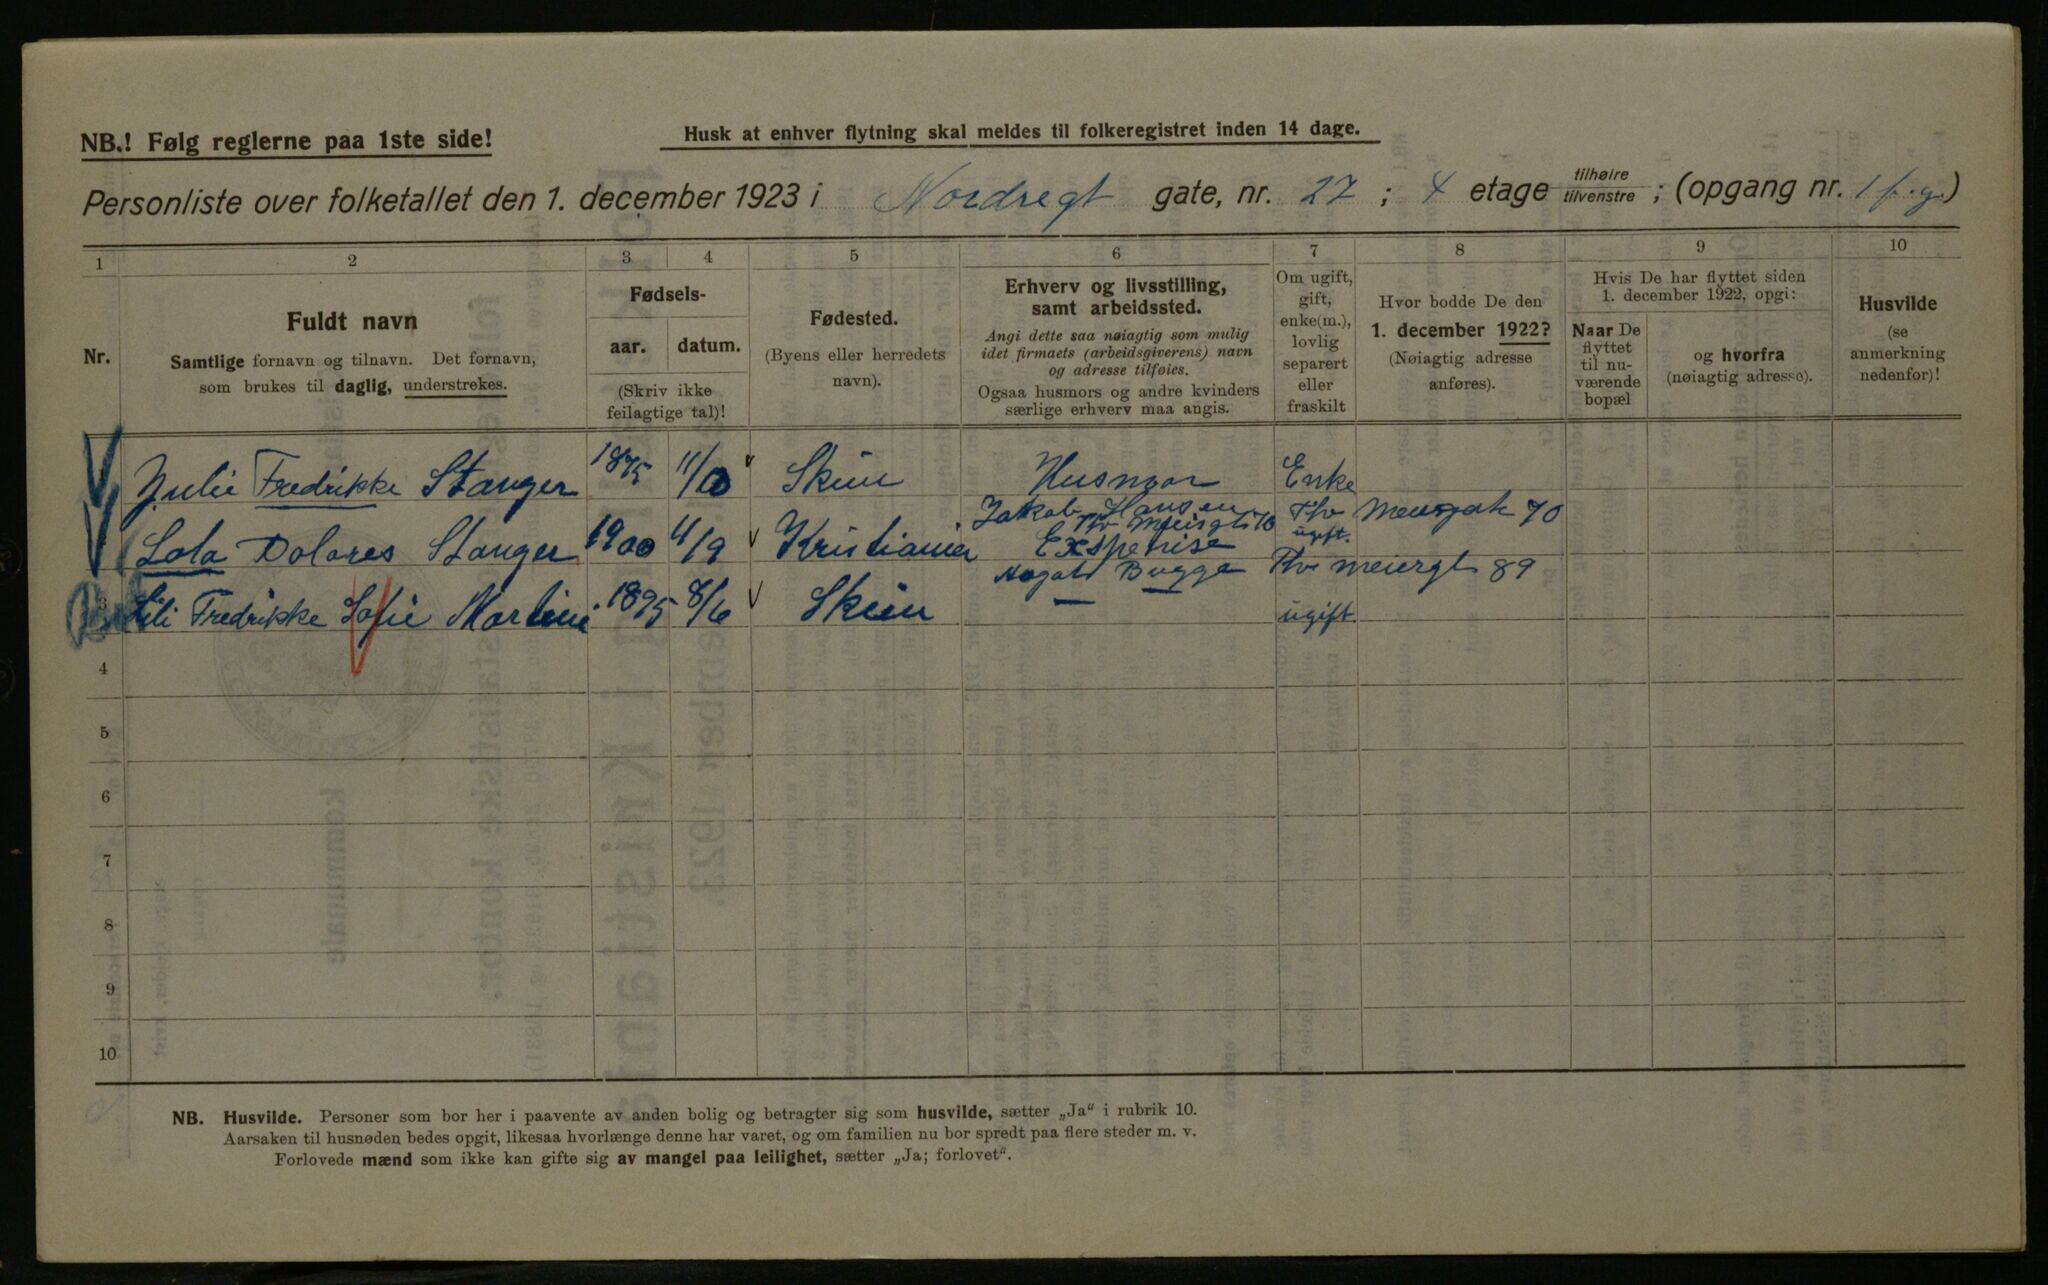 NB.! Følg reglerne paa 1ste side!
Husk at enhver flytning skal meldes til folkeregistret inden 14 dage.
Personliste over folketallet den 1. december 1923 i Nordregt gate, nr. 27; 4 etage tilhøire tilvenstre; (opgang nr. 1 f. g.)
1 2 3 4 5 6 7 8 9 10
Nr.
Fuldt navn
Samtlige fornavn og tilnavn. Det fornavn,
som brukes til daglig, understrekes.
Fødsels-
aar. datum.
(Skriv ikke
feilagtige tal)!
Fødested.
(Byens eller herredets
navn).
Erhverv og livsstilling,
samt arbeidssted.
Angi dette saa nøiagtig som mulig
idet firmaets (arbeidsgiverens) navn
og adresse tilføies.
Ogsaa husmors og andre kvinders
særlige erhverv maa angis.
Om ugift,
gift,
enke(m.),
lovlig
separert
eller
fraskilt
Hvor bodde De den
1. december 1922?
(Nøiagtig adresse
anføres).
Hvis De har flyttet siden
1. december 1922, opgi:
Naar De
flyttet
til nu-
værende
bopæl
og hvorfra
(nøiagtig adresse).
Husvilde
(se
anmerkning
nedenfor)!
Julie Fredrikke Stanger 1875 11/10 Skien Husmor Enke
Jakob Hansen
Lola Dolores Stanger 1900 11/9 Kristiania ugift.
Bugge
Lili Fredrikke Sofie Martini 1895 8/6 Skien — — ugift
4
5
6
7
8
9
10
NB. Husvilde. Personer som bor her i paavente av anden bolig og betragter sig som husvilde, sætter „Ja“ i rubrik 10.
Aarsaken til husnøden bedes opgit, likesaa hvorlænge denne har varet, og om familien nu bor spredt paa flere steder m. v.
Forlovede mænd som ikke kan gifte sig av mangel paa leilighet, sætter „Ja; forlovet“.